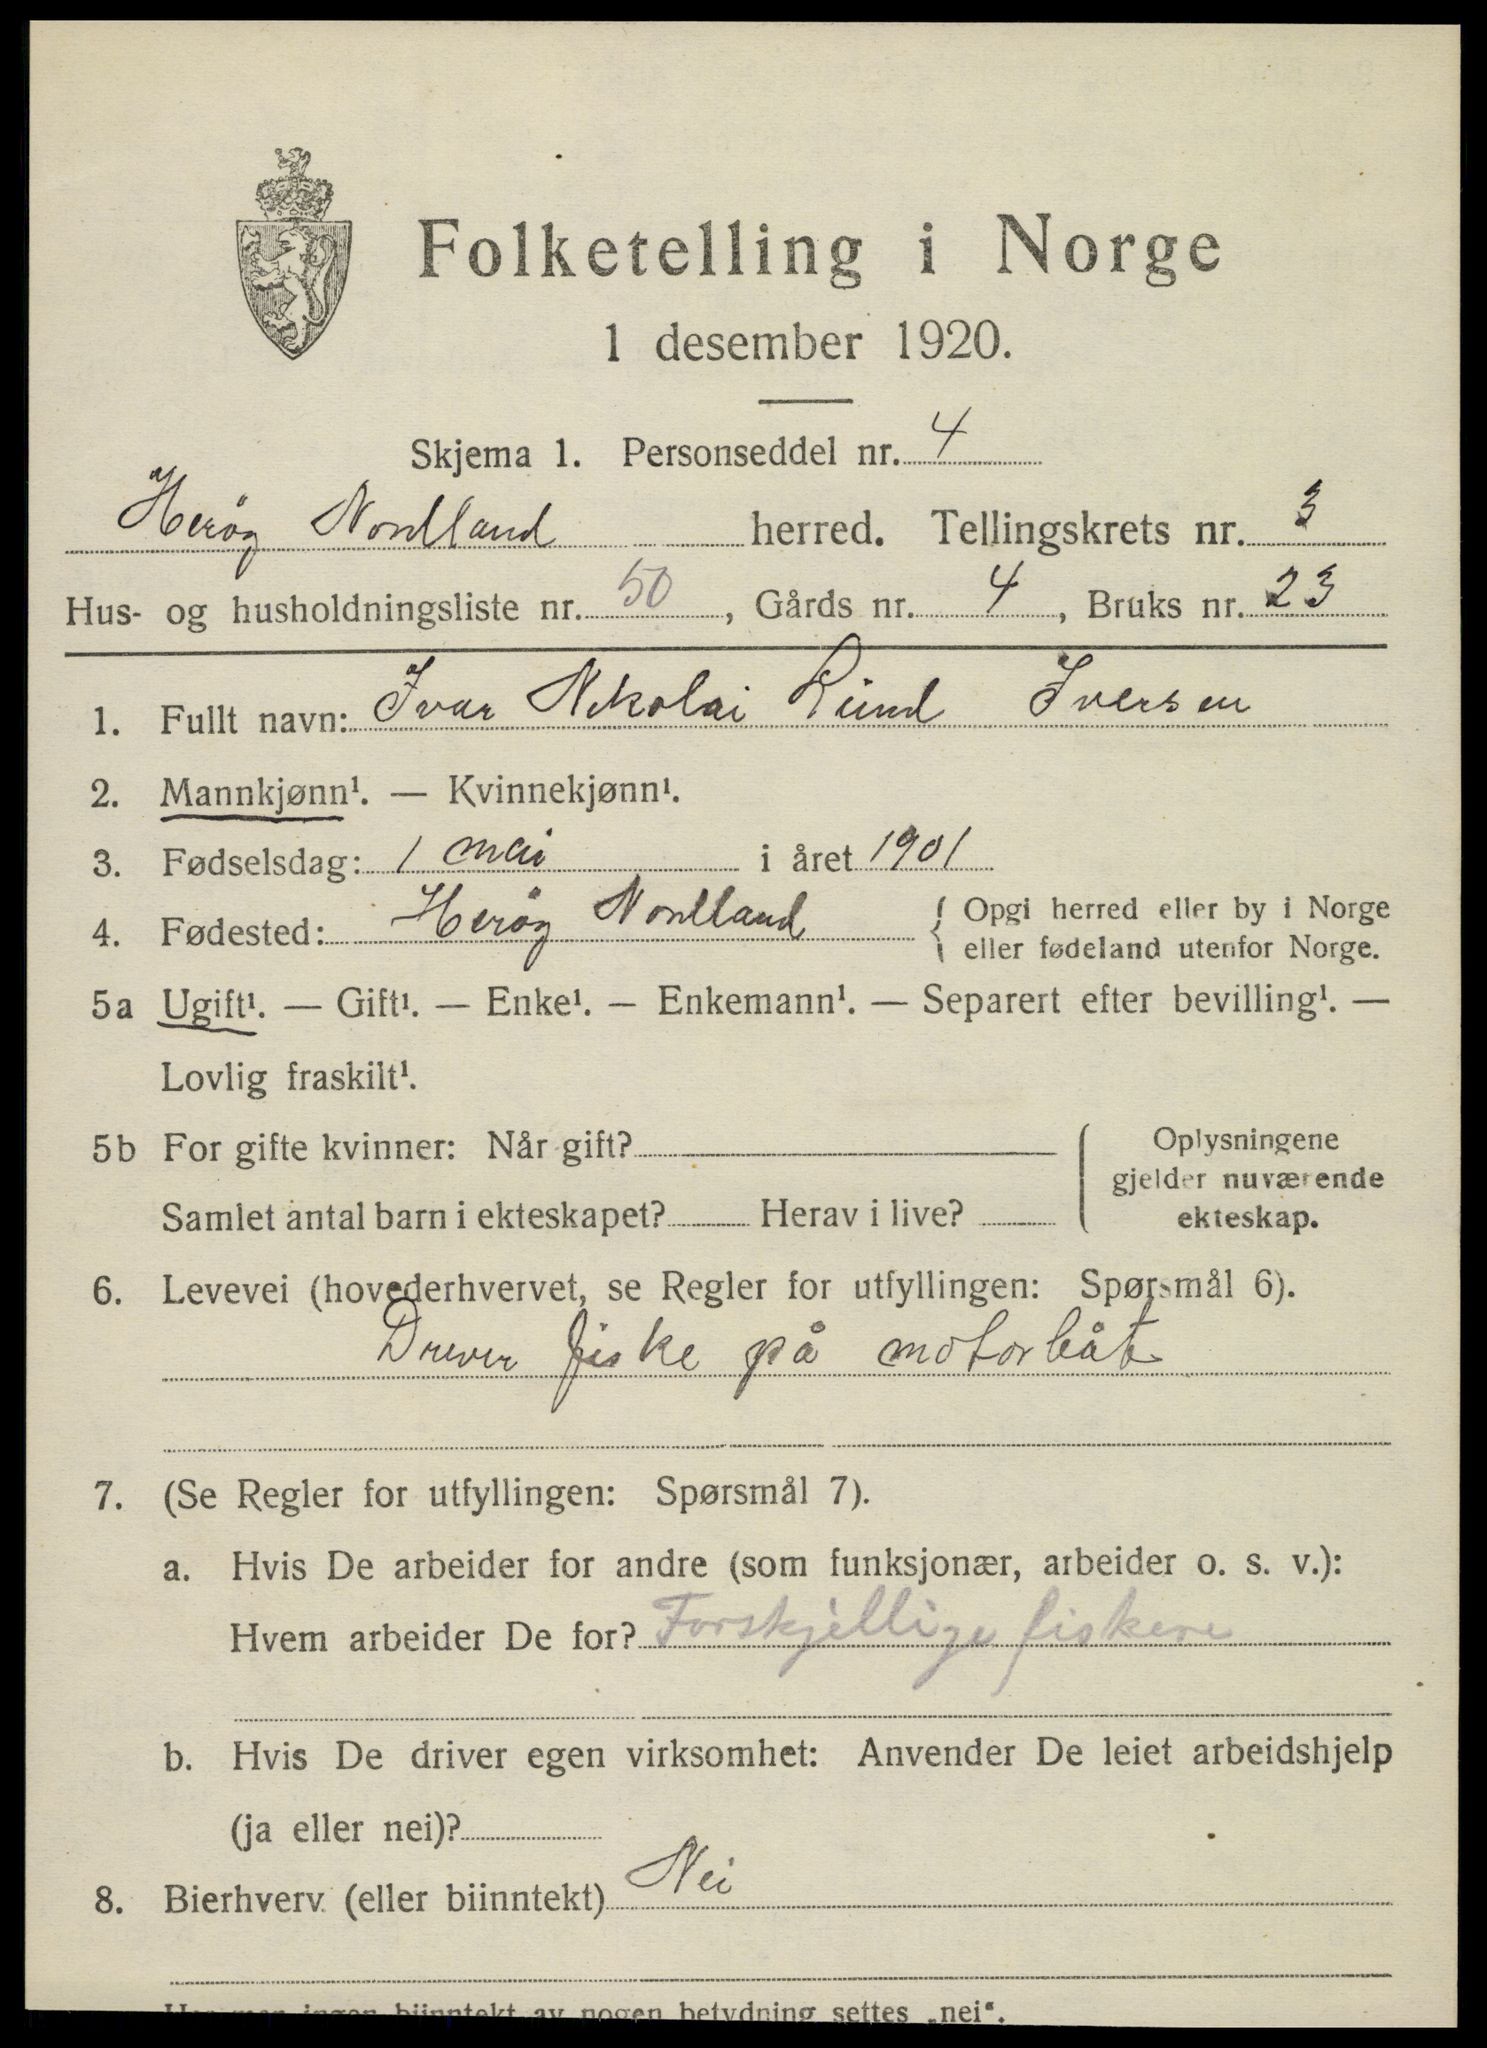 Folketelling i Norge
1 desember 1920.
Skjema 1. Personseddel nr. 4
Herøy Nordland herred. Tellingskrets nr. 3
Hus- og husholdningsliste nr. 50, Gårds nr. 4, Bruks nr. 23
1. Fullt navn: Ivar Nikolai Lund Iversen
2. Mannkjønn¹. — Kvinnekjønn¹.
3. Fødselsdag: 1 mai i året 1901
4. Fødested: Herøy Nordland { Opgi herred eller by i Norge
eller fødeland utenfor Norge.
5a Ugift¹. — Gift¹. — Enke¹. — Enkemann¹. — Separert efter bevilling¹. —
Lovlig fraskilt¹.
5b For gifte kvinner: Når gift?
Samlet antal barn i ekteskapet? Herav i live?
Oplysningene
gjelder nuværende
ekteskap.
6. Levevei (hovederhvervet, se Regler for utfyllingen: Spørsmål 6).
Drever fiske på motorbåt
7. (Se Regler for utfyllingen: Spørsmål 7).
a. Hvis De arbeider for andre (som funksjonær, arbeider o. s. v.):
Hvem arbeider De for? Forskjellige fiskere
b. Hvis De driver egen virksomhet: Anvender De leiet arbeidshjelp
(ja eller nei)?
8. Bierhverv (eller biinntekt) Nei
Har man ingen biinntekt av nogen betydning settes „nei“.